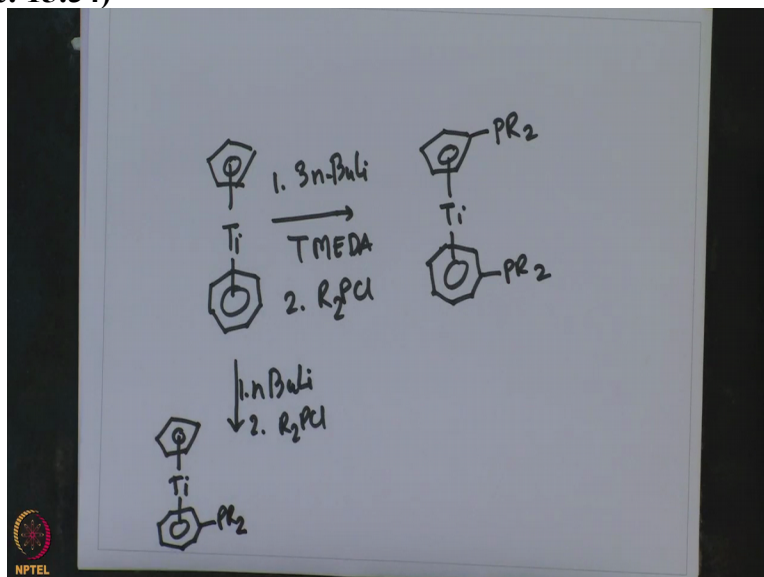 PR2
1. 3n-BuLi
Ti
TMEDA
2. R2PCl
Ti
PR2
1. nBuLi
2. R2PCl
Ti
PR2
NPTEL